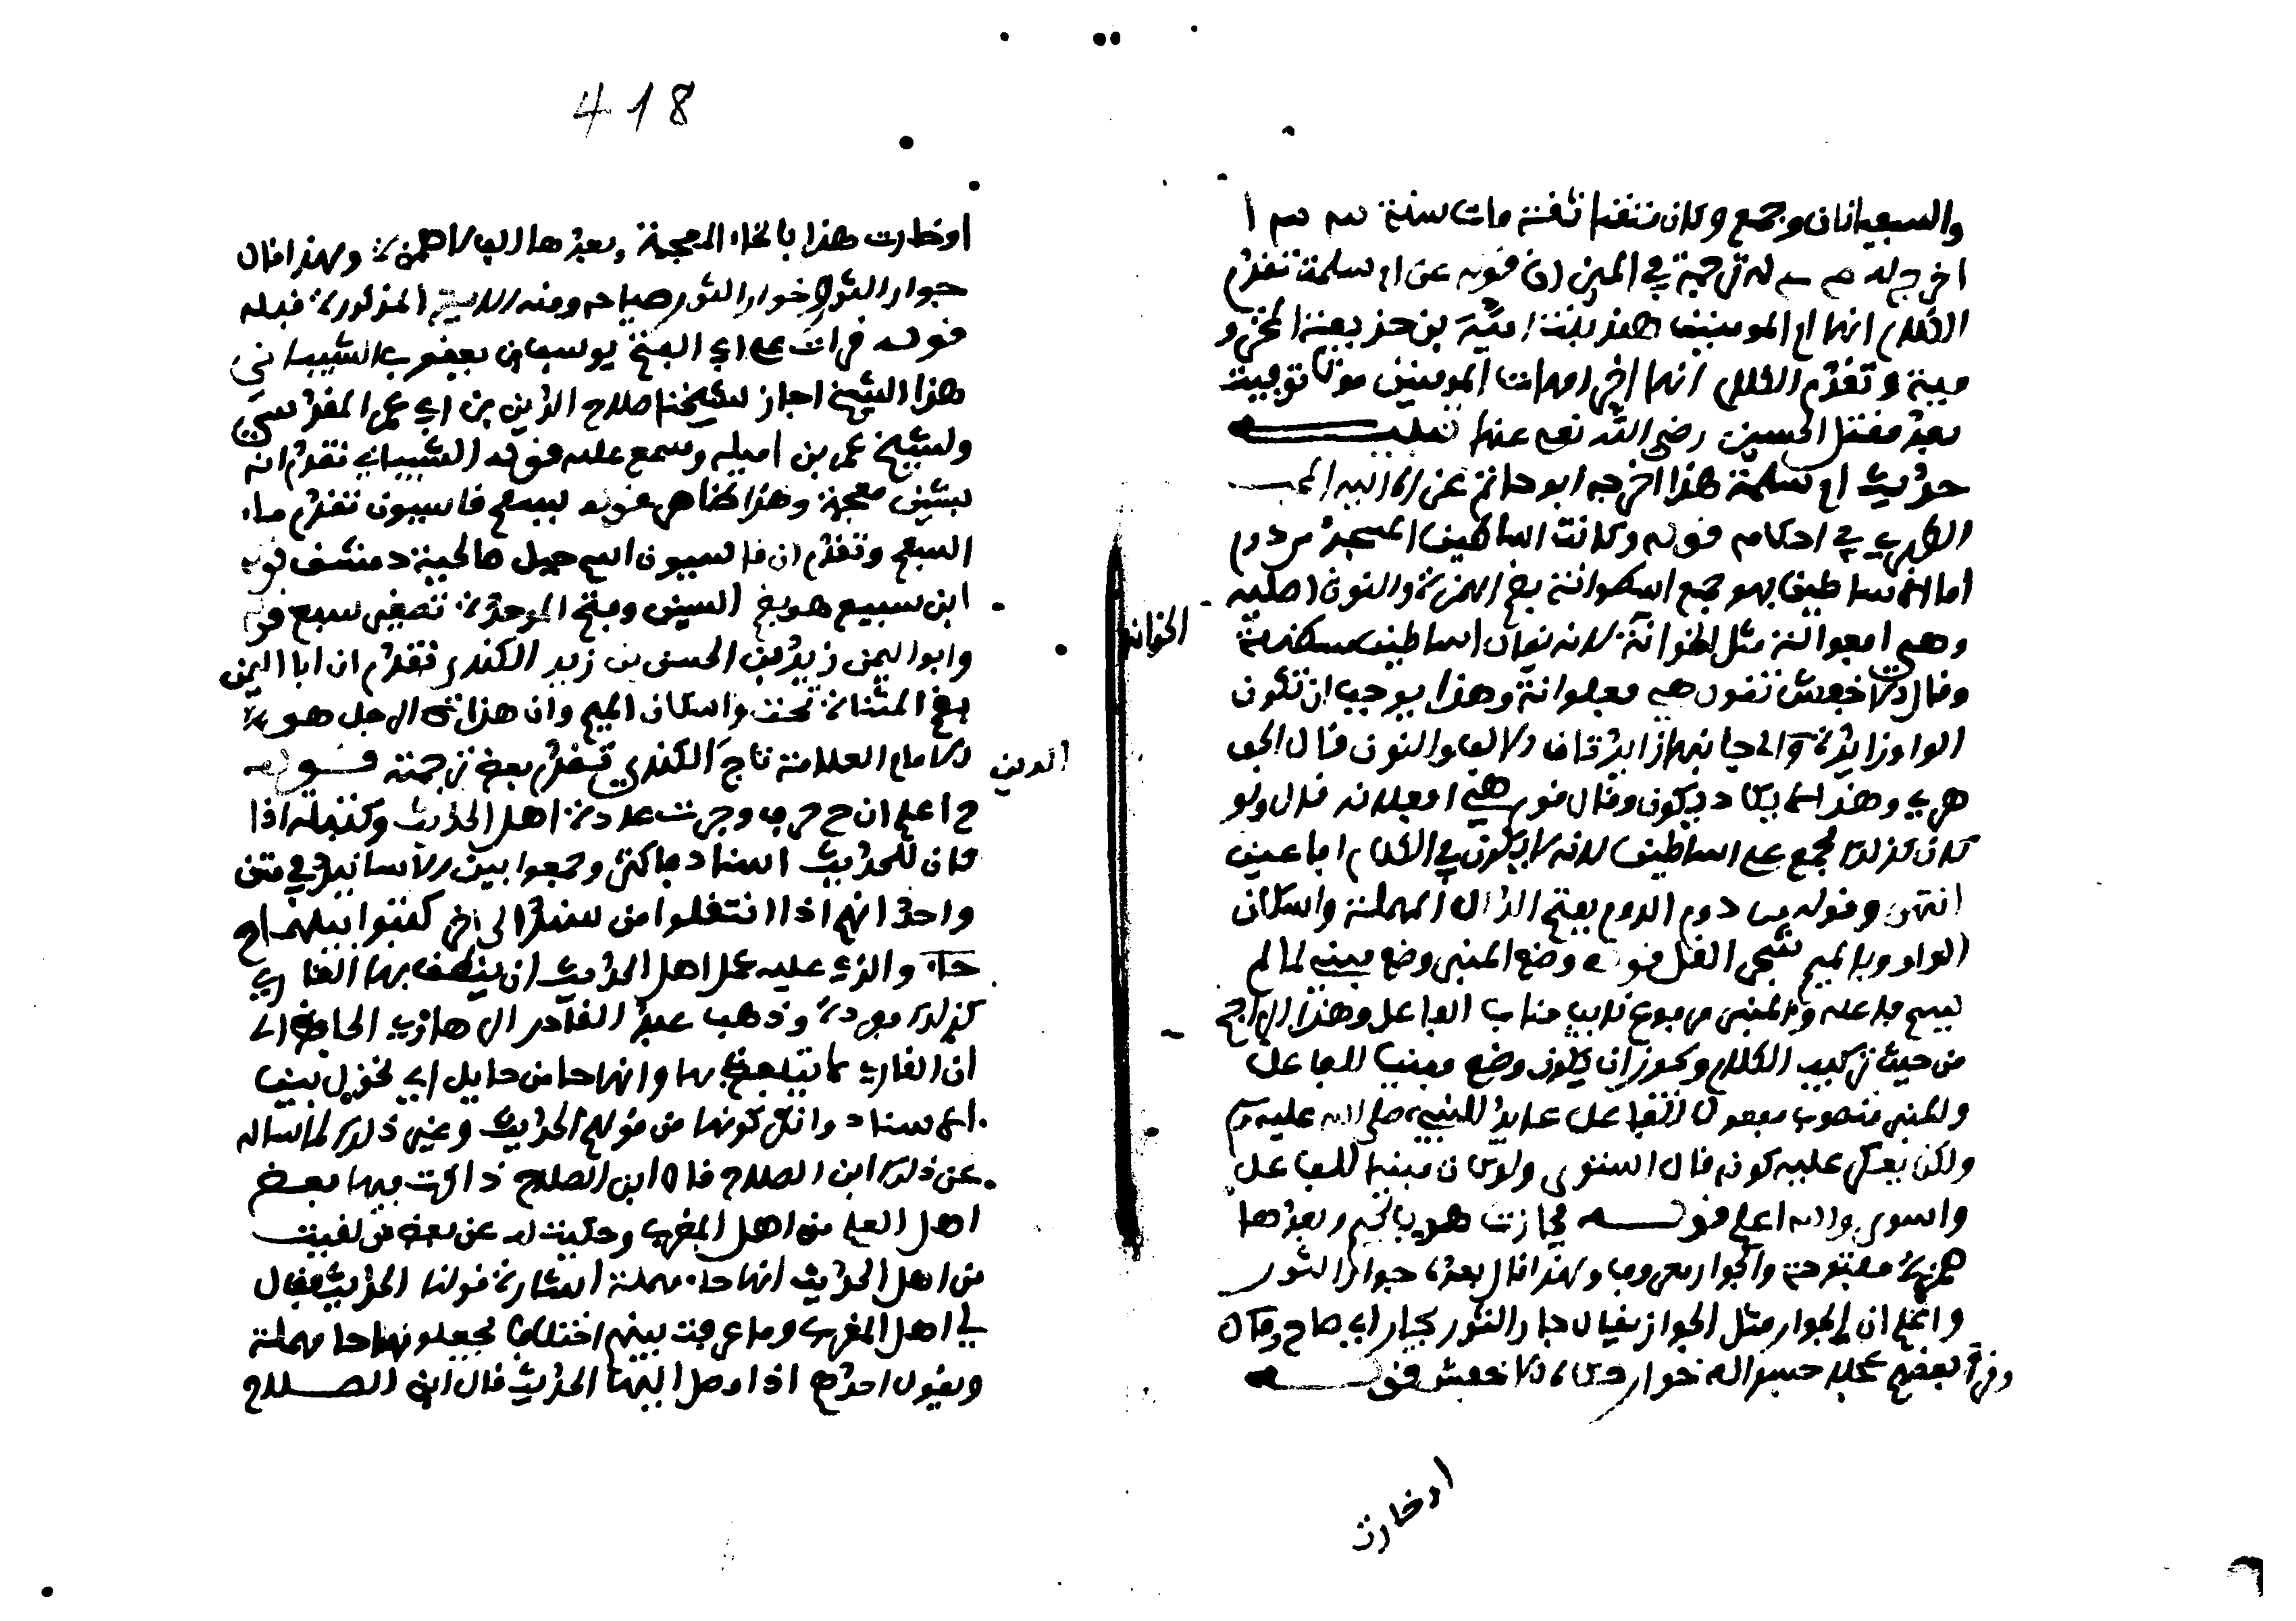 والسفيانان وجمع وكان متقنا ثقة مات سنة ١٣٣
اخرج له م س له ترجمة في الميزان قوله عن ام سلمة تقدم
الكلام انها ام المومنين هند بنت امية بن حذيفة المخزو
مية وتقدم الكلام انها اخر امهات المومنين موتا توفيت
بعد مقتل الحسين رضي الله تعلى عنها تنبيه
حديث ام سلمة هذا اخرجه ابو حاتم عن ابيه المحب
الطبري في احكامه قوله وكانت اساطين المسجد من دوم
اما الاساطين فهو جمع اسطوانة بضم الهمزة والنون اصلية
وهي افعوالة مثل اقحوانة لانه يقال اساطين مسطنة
وقال الاخفش تقول هي فعلوانة وهذا يوجب ان تكون
الواو زايدة والى جانبها زايدتان الالف والنون قال الجو
هري وهذا لا يكاد يكون وقال قوم هي افعلانة قال ولو
كان كذلك لما جمع على اساطين لانه لا يكون في الكلام افاعين
انتهى وقوله من دوم الدوم بفتح الدال المهملة واسكان
الواو وبالميم شجر المقل قوله وضع المنبر وضع مبني لما لم
يسم فاعله والمنبر مرفوع نايب مناب الفاعل وهذا الراجح
من حيث تركيب الكلام ويجوز ان يكون وضع مبنيا للفاعل
والمنبر منصوب مفعول والفاعل عايد للنبي صلى الله عليه وسلم
ولكن يعكر عليه كونه قال استوى ولو كان مبنيا للفاعل
واسوى والله اعلم قوله فجارت هو بالجيم وبعدها
همزة مفتوحة والجوار معروف ولهذا قال بعده جوار الثور
واعلم ان الجوار مثل الخوار يقال جار الثور يجار اي صاح وقال
وقرا بعضهم عجلا جسدا له جوار حكاه الاخفش قوله
الخوانة
او خارت
418
او خارت هذا بالخاء المعجمة وبعدها الف لا همزة ولهذا قال
جوار الثور او خوار الثور صياحه ومنه الاية المذكورة قبله
قوله قرات على ابي الفتح يوسف بن يعقوب الشيباني
هذا الشيخ اجاز لشيخنا صلاح الدين بن ابي عمر المقدسي
ولشيخ عمر بن اميله وسمع عليه قوله الشيباني تقدم انه
بشين معجمة وهذا ظاهر قوله بسفح قاسيون تقدم ما
السفح وتقدم ان قاسيون اسم جبل صالحية دمشق قوله
ابن سبيع هو بضم السين وفتح الموحدة تصغير سبع قوله
وابو اليمن زيد بن الحسن بن زيد الكندي تقدم ان ابا اليمن
بضم المثناة تحت واسكان الميم وان هذا الرجل هو
الامام العلامة تاج الكندي تقدم بعض ترجمته قوله
الدين
ح اعلم ان ح حرف وجرت عادة اهل الحديث وكتبته اذا
كان للحديث اسنادان فاكثر وجمعوا بين الاسانيد في متن
واحد انهم اذا انتقلوا من سند الى اخر كتبوا بينهما ح
حاء والذي عليه عمل اهل الحديث ان ينطق بها القاري
كذلك مفردة وذهب عبد القادر الرهاوي الحافظ الى
ان القاري لا يتلفظ بها وانها حا من حايل اي تحول بين
الاسناد وانكر كونها من قولهم الحديث وغير ذلك لما ساله
عن ذلك ابن الصلاح قال ابن الصلاح ذاكرت فيها بعض
اهل العلم من اهل المغرب وحكيت له عن بعض من لقيت
من اهل الحديث انها حاء مهملة اشارة قولنا الحديث فقال
لي اهل المغرب وما عرفت بينهم اختلافا يجعلونها حا مهملة
ويقول احدهم اذا وصل اليها الحديث قال ابن الصلاح